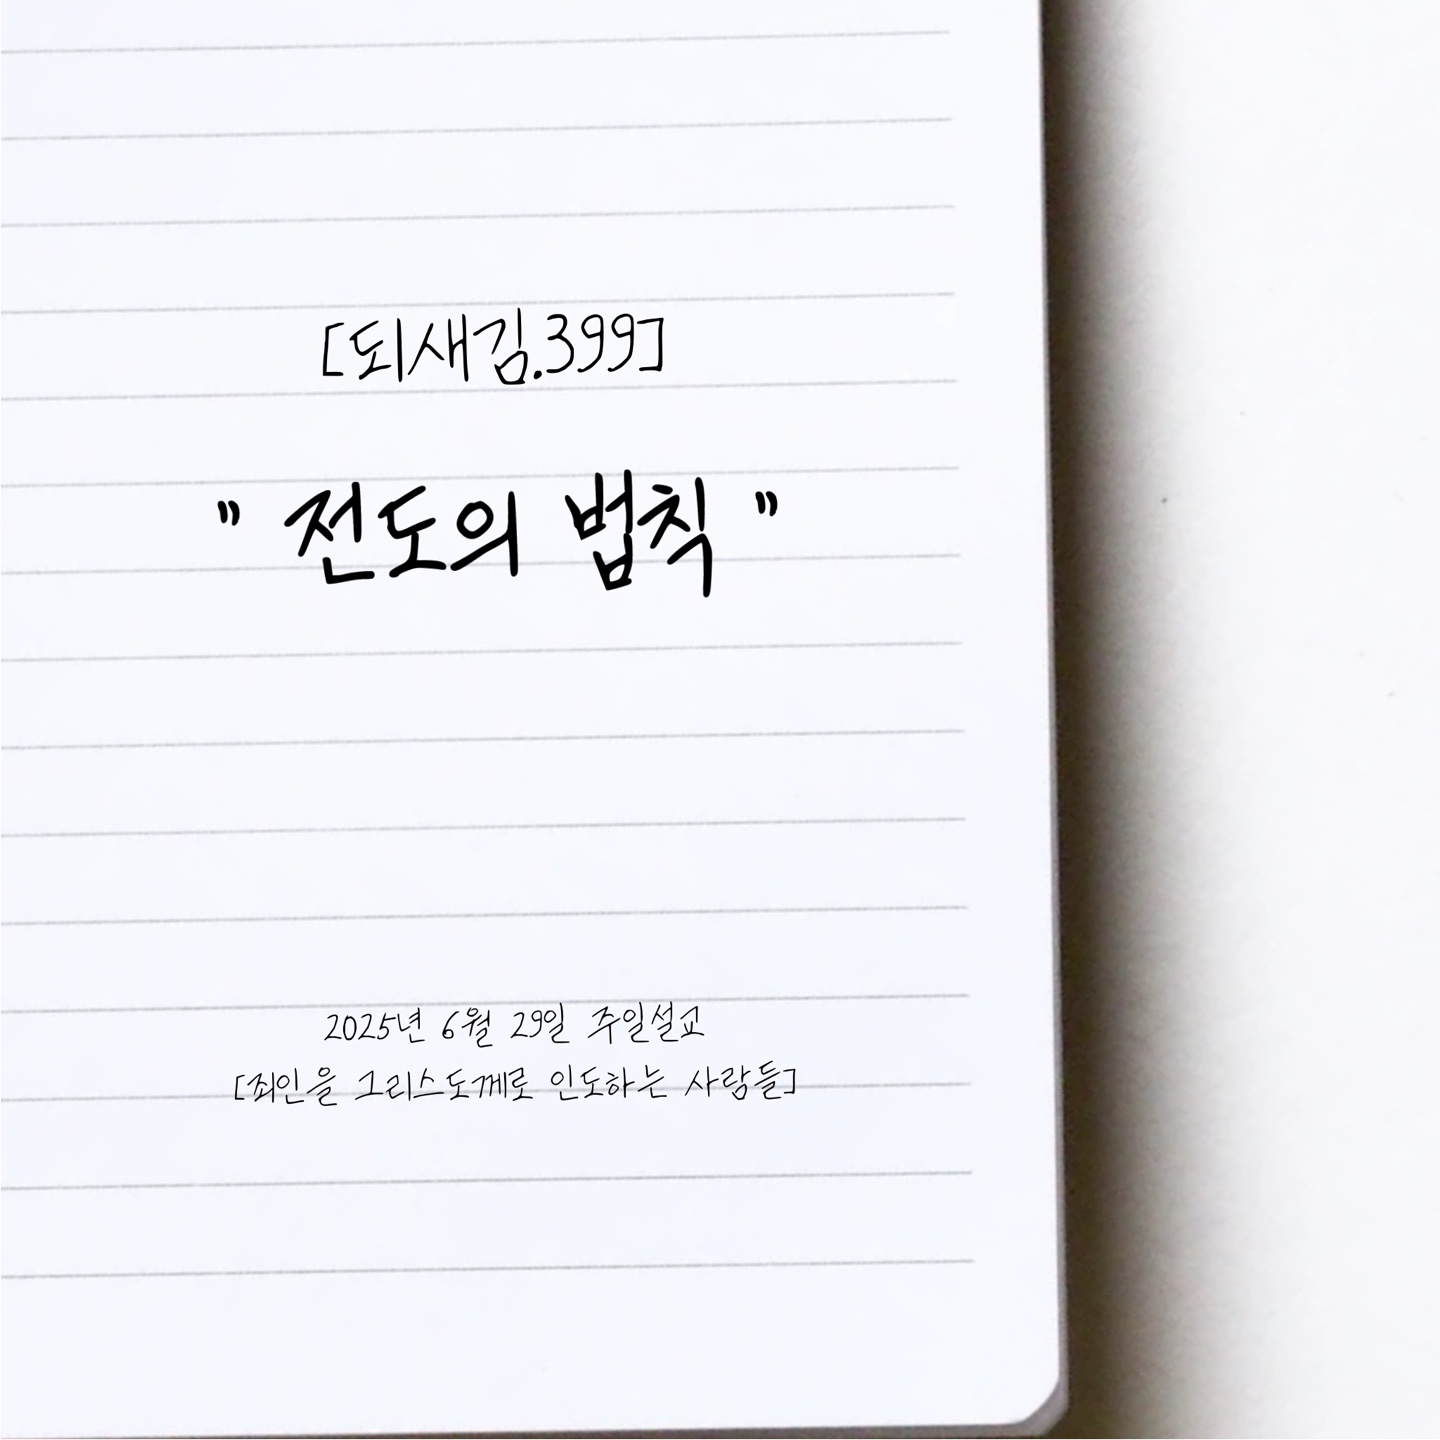 [되새김.399]
" 전도의 법칙 "
2025년 6월 29일 주일설교
[죄인을 그리스도께로 인도하는 사람들]